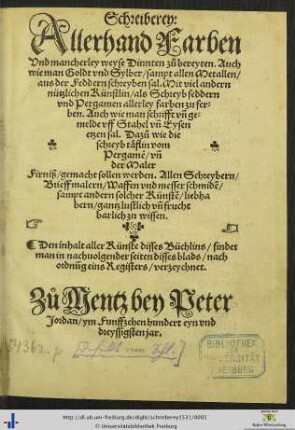 Schreiberey:
Allerhand Farben
Vnd mancherley weyse Dinnten zů bereyten. Auch
wie man Goldt vnd Sylber / sampt allen Metallen /
aus der Feddern schreyben sal. Mit viel andern
nützlichen Künstlin / als Schreyb feddern
vnd Pergamen allerley farben zu fer-
ben. Auch wie man schrifft vñ ge-
melde vff Stahel vñ Eysen
etzen sal. Dazů wie die
schreyb täfflin vom
Pergamē / vñ
der Maler
Firniß / gemacht sollen werden. Allen Schreybern /
Brieff malern / Waffen vnd messer schmidē /
sampt andern solcher Künstē / liebha
bern / gantz lustlich vñ frucht
barlich zu wissen.
Den inhalt aller Künste disses Büchlins / findet
man in nachuolgender seiten disses blads / nach
ordnūg eins Registers / verzeychnet.
Zů Mentz bey Peter
Jordan / ym Funffzehenhundert eyn vnd
dreyssigsten jar.
BIBLIOTHEK
FREIBURG
http://dl.ub.uni-freiburg.de/diglit/schreiberey1531/0005
© Universitätsbibliothek Freiburg
Baden-Württemberg